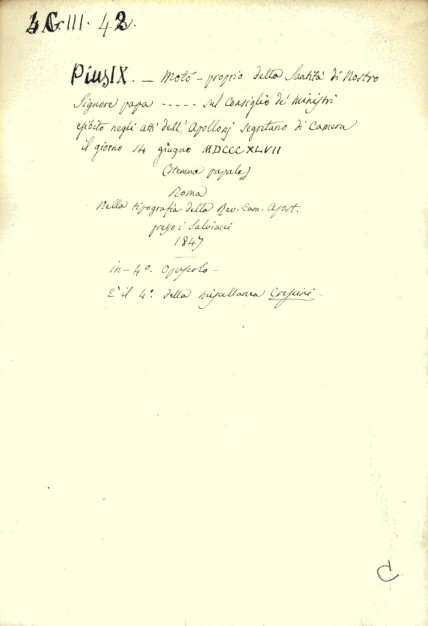 4.C.III.42.
Pius IX. — Moto-proprio della Santità di Nostro
Signore papa ----- sul Consiglio de' ministri
esibito negli atti dell' Apollonj segretario di Camera
il giorno 14 giugno MDCCCXLVII
(stemma papale)
Roma
Nella tipografia della Rev. Cam. Apost.
presso i Salviucci
1847
in-4º. Opuscolo-
È il 4º. della miscellanea
C